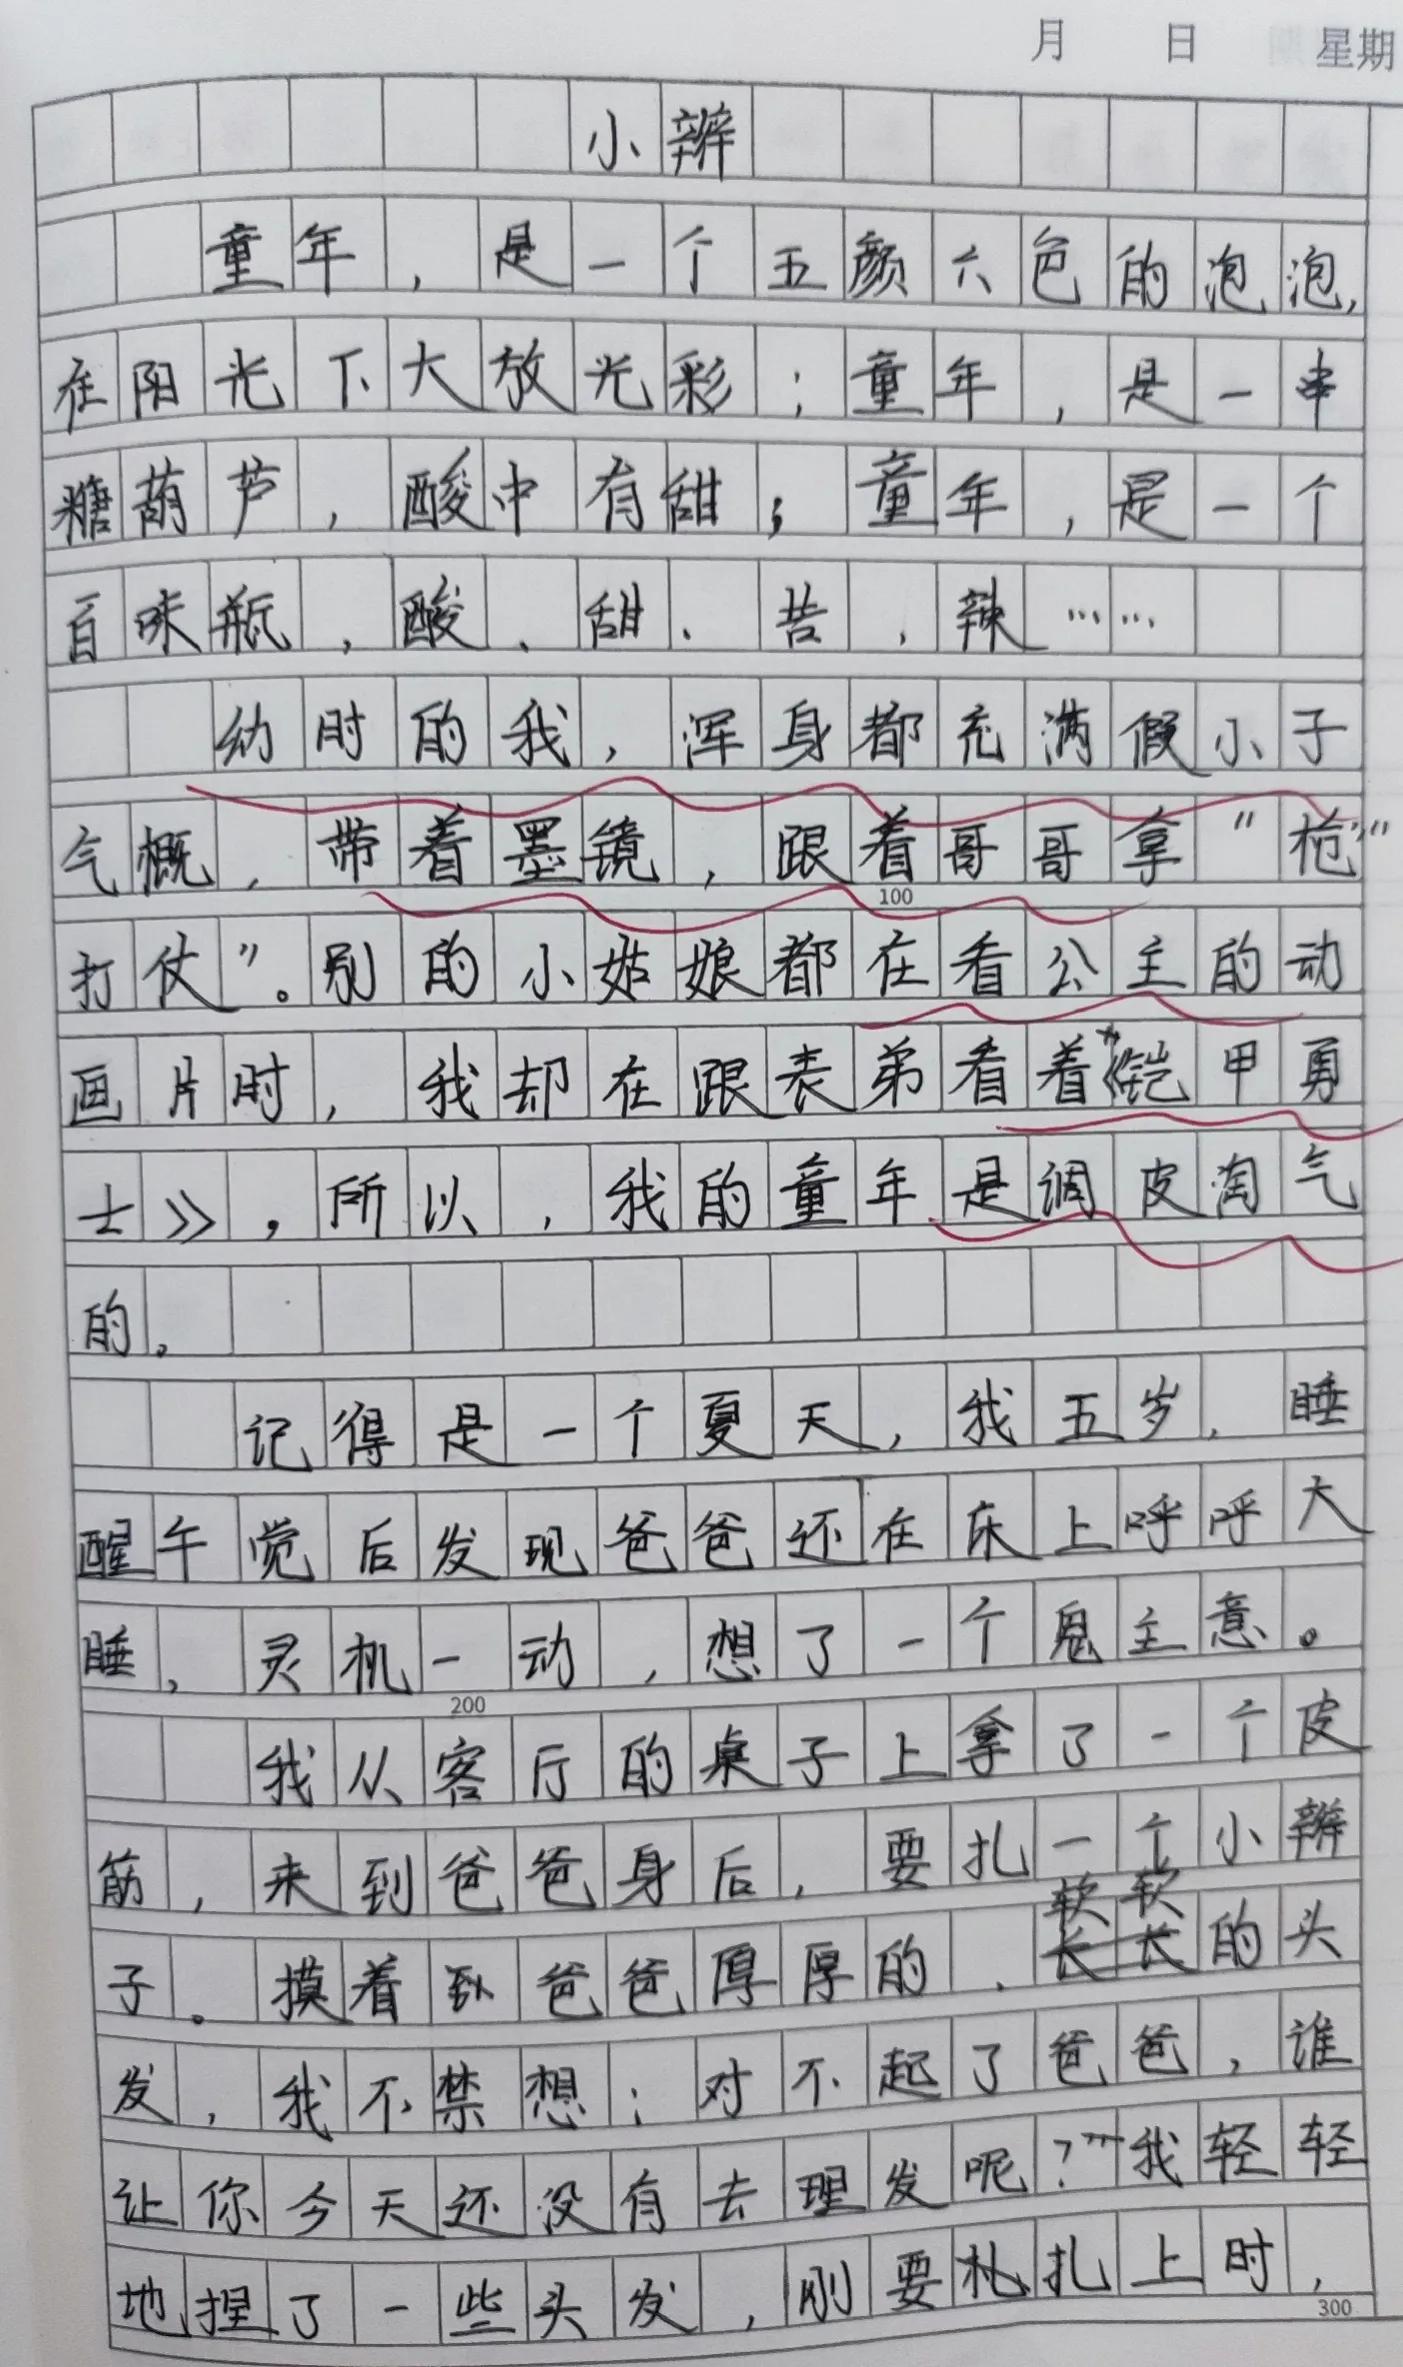 月 日 星期
小辨
童年，是一个五颜六色的泡泡，
在阳光下大放光彩；童年，是一串
糖葫芦，酸中有甜；童年，是一个
百味瓶，酸、甜、苦、辣……
幼时的我，浑身都充满假小子
气概，带着墨镜，跟着哥哥拿“枪”“
打仗”。别的小姑娘都在看公主的动
画片时，我却在跟表弟看着《铠甲勇
士》，所以，我的童年是调皮淘气
100
的。
记得是一个夏天，我五岁，睡
醒午觉后发现爸爸还在床上呼呼大
睡，灵机一动，想了一个鬼主意。
200
我从客厅的桌子上拿了一个皮
筋，来到爸爸身后，要扎一个小辨
子。摸着卧爸爸厚厚的、软软的头
发，我不禁想：对不起了爸爸，谁
让你今天还没有去理发呢？”我轻轻
地捏了一些头发，刚要札扎上时，
300